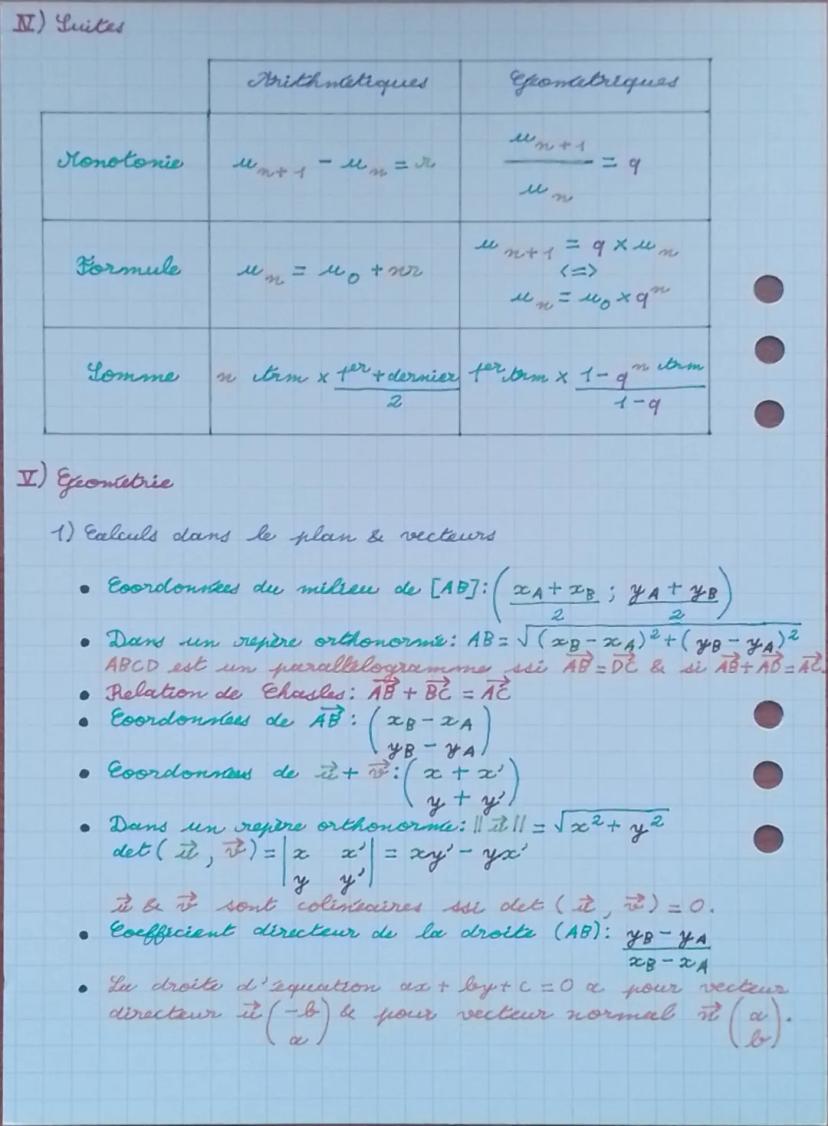 IV) Suites
Arithmétiques Géométriques
Monotonie u_{n+1} - u_n = r u_{n+1} / u_n = q
Formule u_n = u_0 + nr u_{n+1} = q × u_n
<=>
u_n = u_0 × q^n
Somme n trm × (1er + dernier) / 2 1er trm × (1 - q^{n trm}) / (1 - q)
V) Géométrie
1) Calculs dans le plan & vecteurs
• Coordonnées du milieu de [AB]: ((x_A + x_B) / 2 ; (y_A + y_B) / 2)
• Dans un repère orthonormé: AB = √((x_B - x_A)² + (y_B - y_A)²)
ABCD est un parallélogramme ssi \vec{AB} = \vec{DC} & si \vec{AB} + \vec{AD} = \vec{AC}.
• Relation de Chasles: \vec{AB} + \vec{BC} = \vec{AC}
• Coordonnées de \vec{AB}: (x_B - x_A
y_B - y_A)
• Coordonnées de \vec{u} + \vec{v}: (x + x'
y + y')
• Dans un repère orthonormé: ||\vec{u}|| = √(x² + y²)
det(\vec{u}, \vec{v}) = |x x'| = xy' - yx'
|y y'|
\vec{u} & \vec{v} sont colinéaires ssi det(\vec{u}, \vec{v}) = 0.
• Coefficient directeur de la droite (AB): (y_B - y_A) / (x_B - x_A)
• La droite d'équation ax + by + c = 0 a pour vecteur
directeur \vec{u} (-b
a) & pour vecteur normal \vec{n} (a
b).